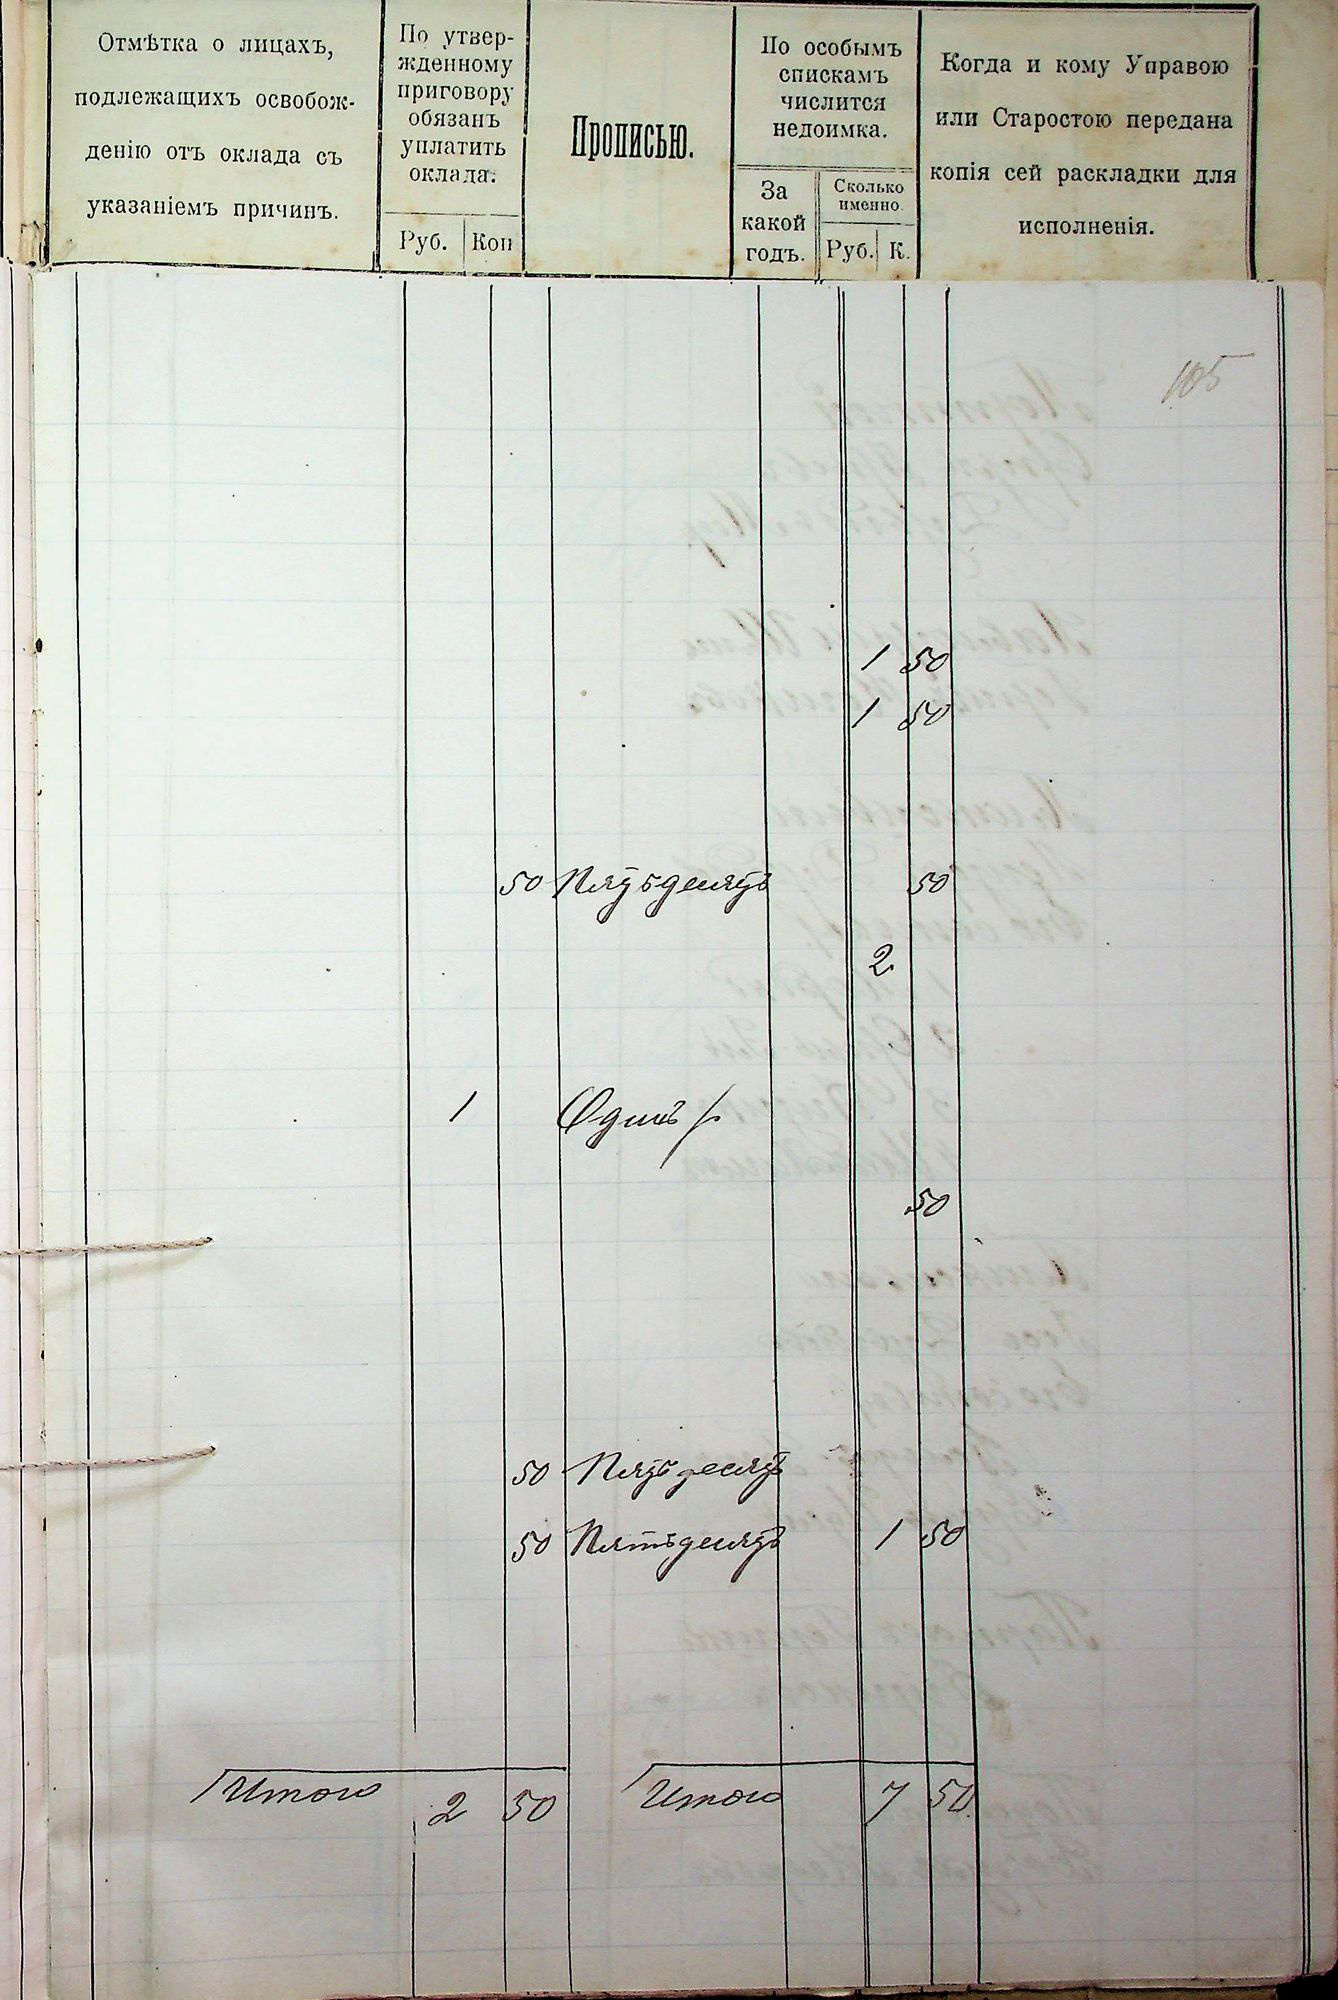 Отмѣтка о лицахъ,
подлежащихъ освобож-
денію отъ оклада съ
указаніемъ причинъ.
По утвер-
жденному
приговору
обязанъ
уплатить
оклада.
Руб. Коп
Прописью.
По особымъ
спискамъ
числится
недоимка.
За
какой
годъ.
Сколько
именно.
Руб. К.
Когда и кому Управою
или Старостою передана
копія сей раскладки для
исполненія.
105
1 50
1 50
50 Пятьдесятъ 50
2
1 Одинъ р.
50
50 Пятьдесятъ
50 Пятьдесятъ 1 50
Итого 2 50 Итого 7 50